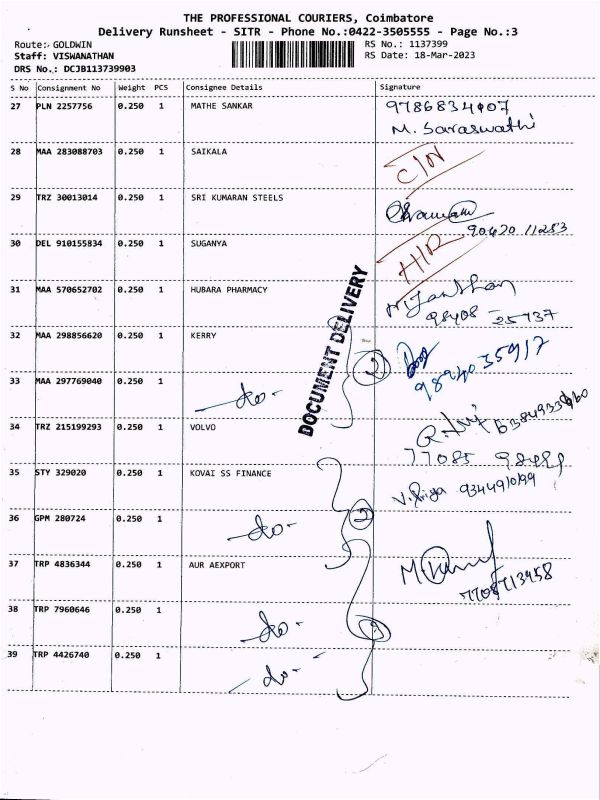 THE PROFESSIONAL COURIERS, Coimbatore
Delivery Runsheet - SITR - Phone No.:0422-3505555 - Page No.:3
Route: GOLDWIN RS No.: 1137399
Staff: VISWANATHAN RS Date: 18-Mar-2023
DRS No.: DCJB113739903
S No Consignment No Weight PCS Consignee Details Signature
27 PLN 2257756 0.250 1 MATHE SANKAR
M. Saraswathi
28 MAA 283088703 0.250 1 SAIKALA C/N
29 TRZ 30013014 0.250 1 SRI KUMARAN STEELS
90420 11283
30 DEL 910155834 0.250 1 SUGANYA H/R
31 MAA 570652702 0.250 1 HUBARA PHARMACY
98408 25737
32 MAA 298856620 0.250 1 KERRY 2 98940 35917
33 MAA 297769040 0.250 1 do-
DOCUMENT DELIVERY
34 TRZ 215199293 0.250 1 VOLVO
77085
35 STY 329020 0.250 1 KOVAI SS FINANCE V. Priya
36 GPM 280724 0.250 1 do- 2
37 TRP 4836344 0.250 1 AUR AEXPORT
7708713458
38 TRP 7960646 0.250 1 do-
39 TRP 4426740 0.250 1 do-